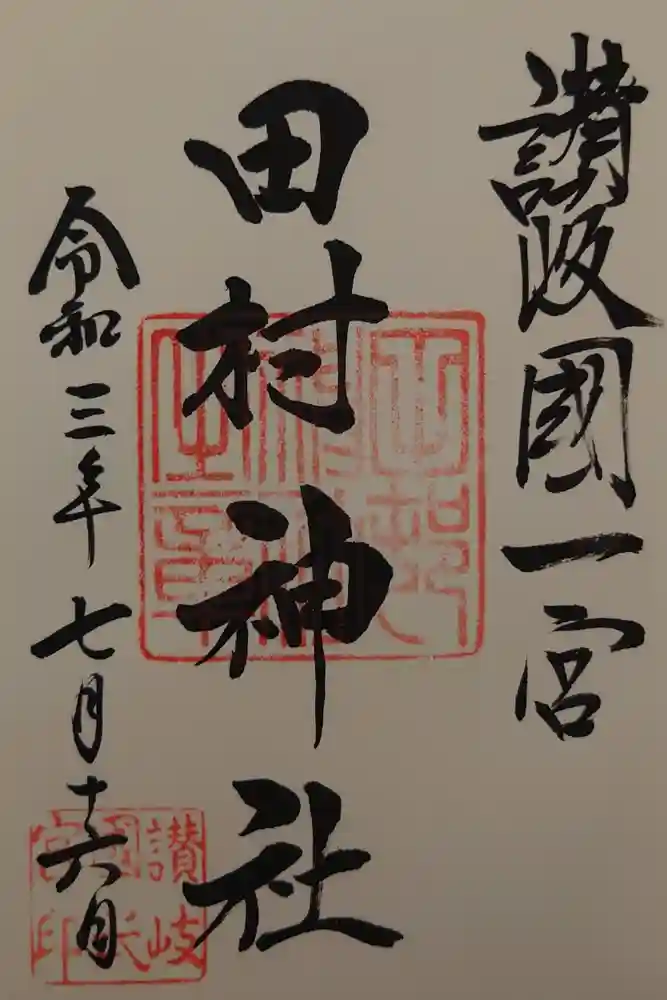 讃岐國一宮
田村神社
令和三年七月十六日
讃岐